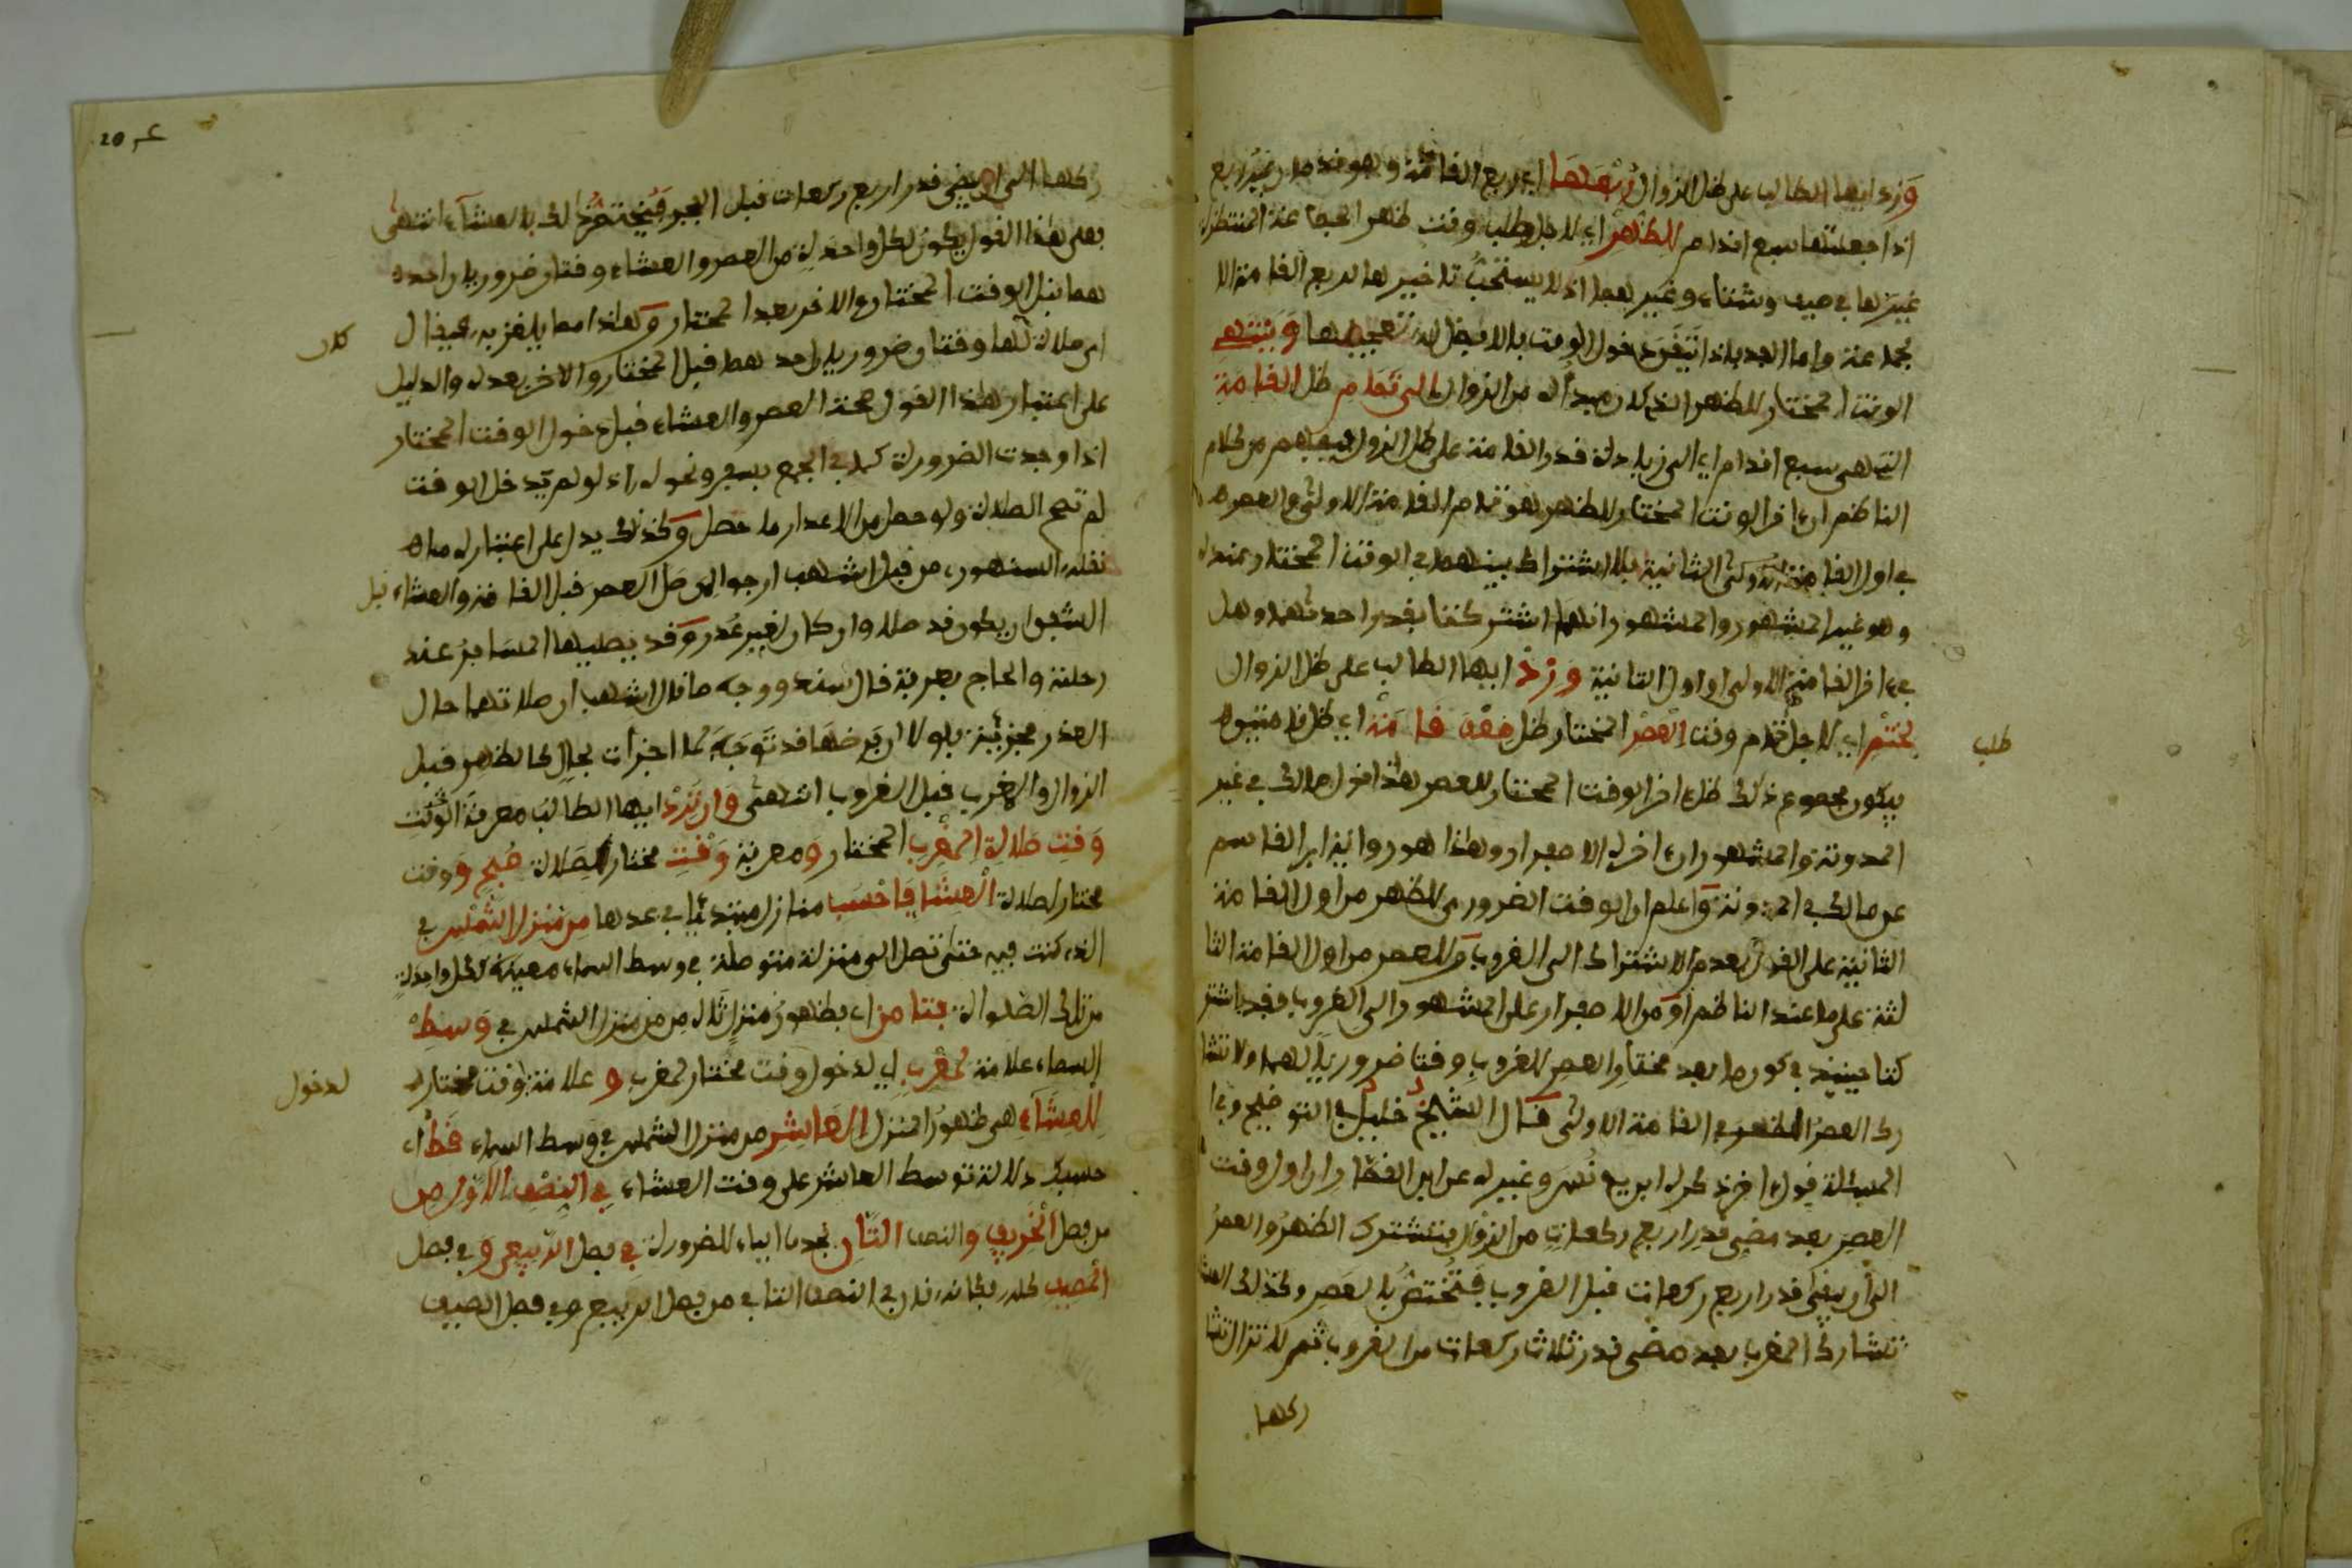 وَزِد ايها الطالب على ظل الزوال رُبْعَهَا اي ربع القامة وهو قدمان غير ربع
اذا جعلتها سبع اقدام للظهر اي لاجل طلب وقت ظهر الجماعة المنتظرة
غيرها في صيف وشتاء وغير هما اذ لا يستحب تاخيرها لربع القامة الا
لجماعة واما الفذ فاذا تقرر دخول الوقت فالافضل له تعجيلها وينتهي
الوقت المختار للظهر الذي كان مبدأه من الزوال الى تمام ظل القامة
التي هي سبع اقدام اي الى زيادة قدر القامة على ظل الزوال فيفهم من كلام
الناظم ان اخر الوقت المختار للظهر هو تمام القامة الاولى والعصر
في اول القامة الثانية بلا اشتراك بينهما في الوقت المختار عنده
وهو غير المشهور والمشهور انهما اشتركتا بقدر احداهما وهل
في اخر القامة الاولى او اول الثانية وَزِدْ ايها الطالب على ظل الزوال
لختم اي لاجل تمام وقت العصر المختار ظل ضعف قامة اي ظل قامتين
فيكون مجموع ذلك ظل اخر الوقت المختار للعصر هذا قول مالك في غير
المدونة والمشهور ان اخره الاصفرار وهذا هو رواية ابن القاسم
عن مالك في المدونة واعلم ان الوقت الضروري للظهر من اول القامة
الثانية على القول بعدم الاشتراك الى الغروب وللعصر من اول القامة الثا
لثة على ما عند الناظم او من الاصفرار على المشهور الى الغروب فقد اشتر
كتا حينئذ في كون ما بعد مختار العصر للغروب وقتا ضروريا لهما ولا تشا
رك العصر الظهر في القامة الاولى قال الشيخ خليل في التوضيح وفي
المسئلة قول اخر ذكره ابن يونس وغيره عن ابن القصار ان اول وقت
العصر بعد مضي قدر اربع ركعات من الزوال فتشترك الظهر والعصر
الى ان يبقى قدر اربع ركعات قبل الغروب فتختص بالعصر وكذلك العشا
تشارك المغرب بعد مضي قدر ثلاث ركعات من الغروب ثم لا تزال تشا
ركها
طلب
20
ركها الى ان يبقى قدر اربع ركعات قبل الفجر فيختص ذلك بالعشاء انتهى
فعلى هذا القول يكون لكل واحدة من العصر والعشاء وقتان ضروريان احده
هما قبل الوقت المختار والاخر بعد المختار وهذا مما يلغز به فيقال
اي صلاة لها وقتان ضروريان احدهما قبل المختار والاخر بعده والدليل
كان
على اعتبار هذا القول صحة العصر والعشاء قبل دخول الوقت المختار
اذا وجدت الضرورة كما في الجمع بسفر ونحوه اذ لو لم يدخل الوقت
لم تصح الصلاة ولو حصل من الاعذار ما حصل وكذلك يدل على اعتباره ما
نقله السنهوري من قول اشهب ارجوا لمن صلى العصر قبل القامة والعشاء قبل
الشفق ان يكون قد صلا وان كان لغير عذر وقد يصليها المسافر عند
رحلته والحاج بعرفة قال سند ووجه ما قال اشهب ان صلاتهما حال
العذر مجزئة فلولا ان فرضها قد توجه لما اجزأت بحال كالظهر قبل
الزوال والمغرب قبل الغروب انتهى وان ترد ايها الطالب معرفة الوقت
وَقْتِ صَلاةِ المغرب المختار و معرفة وَقْتِ مختار لصلاة صبح ووقت
مختار لصلاة العشا فاحسب منازل مبتديا في عدها من منزل الشمس في
الذي كنت فيه حتى تصل الى منزلة متوصلة في وسط السماء معينة لكل واحدة
من تلك الصلوات فثامن اي بظهور منزل ثامن من منزل الشمس في وَسِطِ
السماء علامة لمغرب اي لدخول وقت مختار لمغرب و علامة وقت مختار
لدخول
للعشاء هي ظهور المنزل العاشر من منزل الشمس في وسط السماء فقط اي
حسبك دلالة توسط العاشر على وقت العشاء في النصف الاول من
من فصل الخريف والنصف الثان بحذف الياء للضرورة في فصل الربيع و في فصل
المصيف كله فكانه قال في النصف الثاني من فصل الربيع وفي فصل الصيف